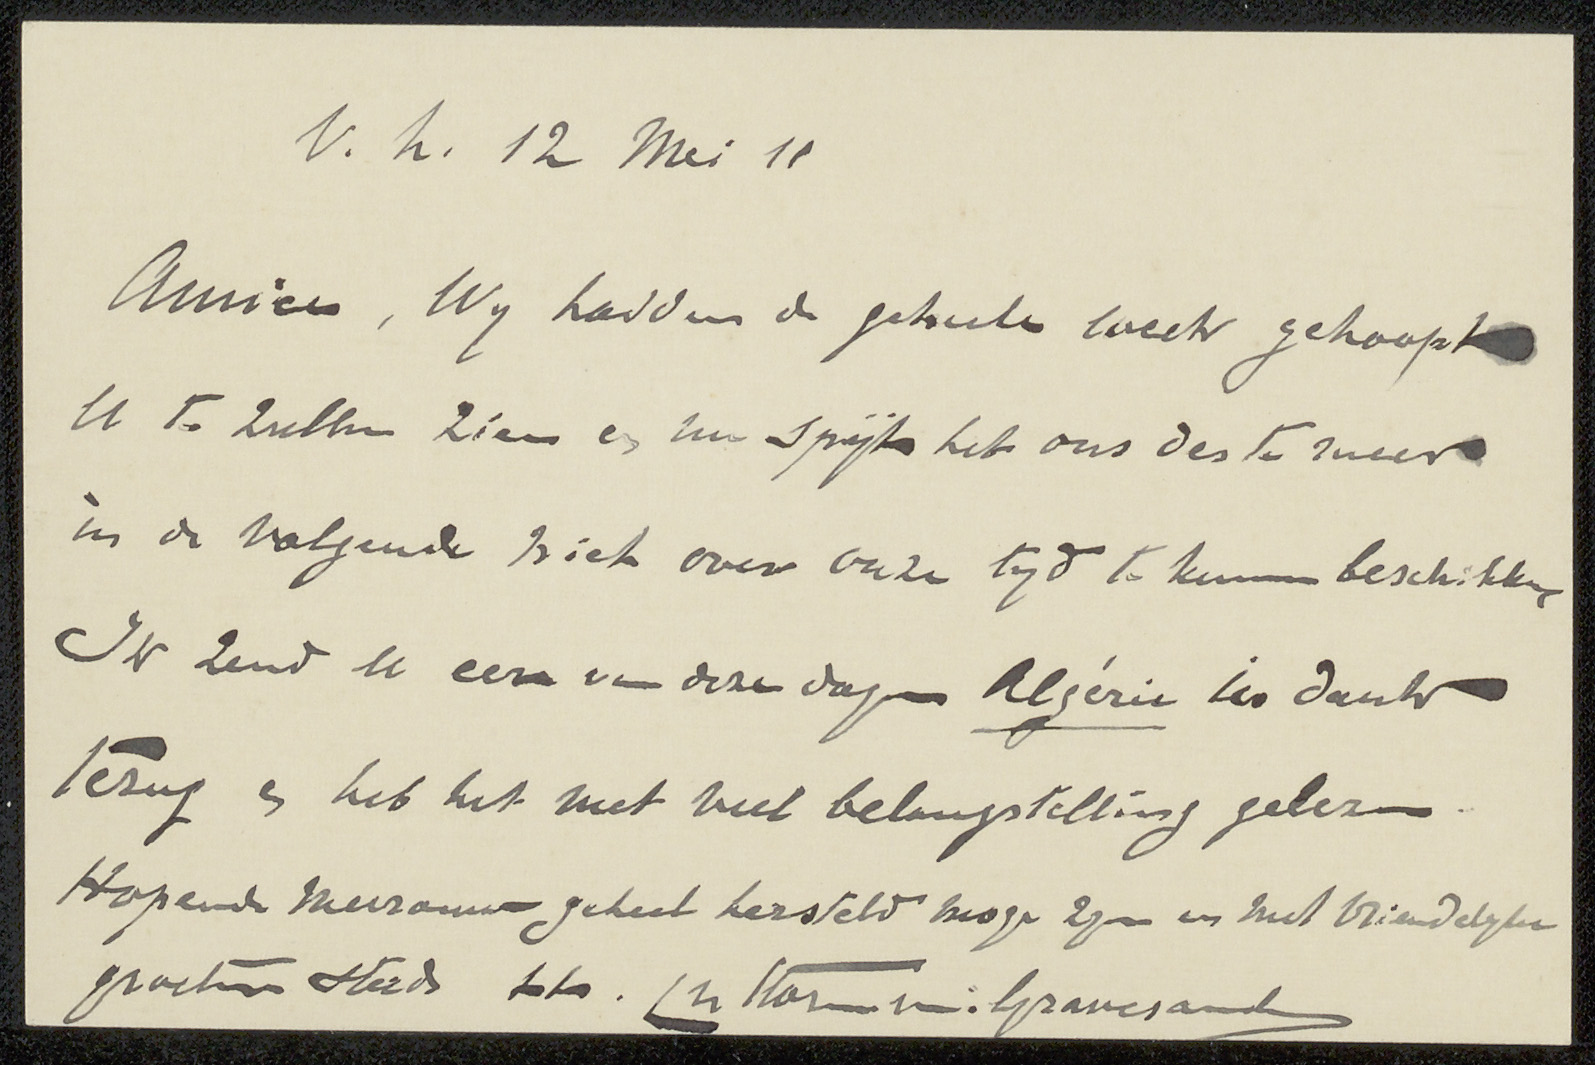 V. h. 12 Mei 11
Amice, Wij hadden de geheele week gehoopt
U te zullen zien en nu spijt het ons des te meer
in de volgende niet over onze tijd te kunnen beschikken
Ik zend U een van deze dagen Algérie in dank
terug en heb het met veel belangstelling gelezen.
Hopende Mevrouw geheel hersteld moge zijn en met vriendelyke
groeten steeds tt. Storm v. 's Gravesande